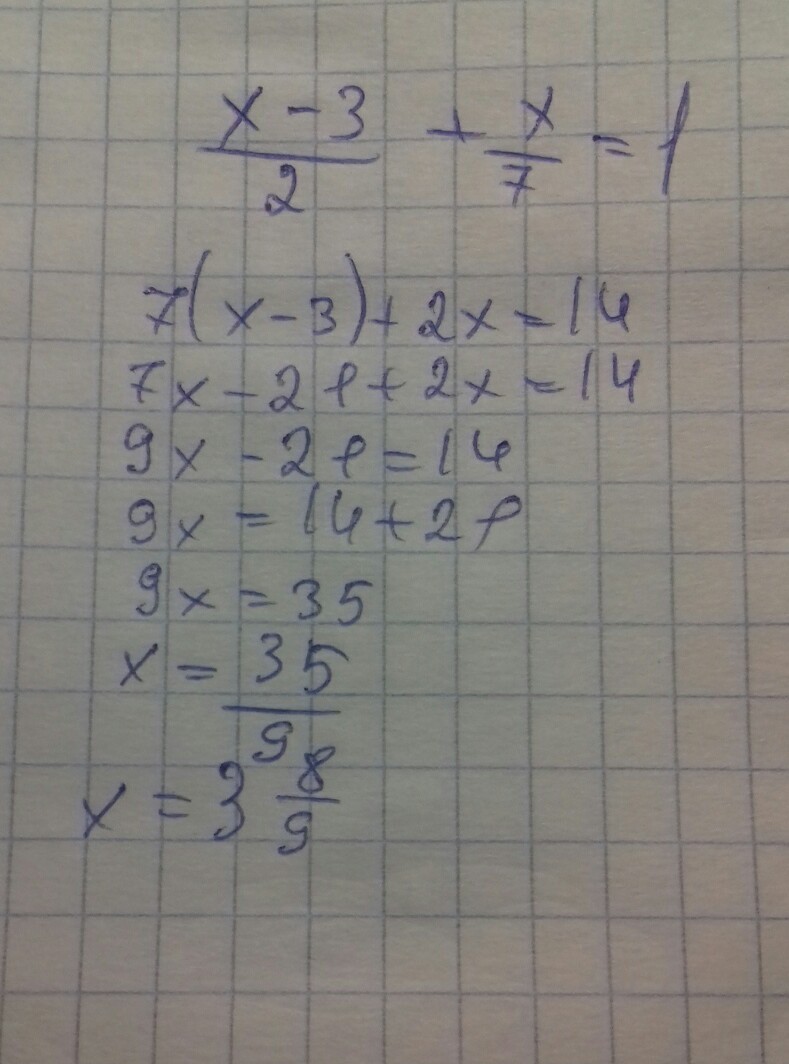 (x - 3)/2 + x/7 = 1
7(x - 3) + 2x = 14
7x - 21 + 2x = 14
9x - 21 = 14
9x = 14 + 21
9x = 35
x = 35/9
x = 3 8/9